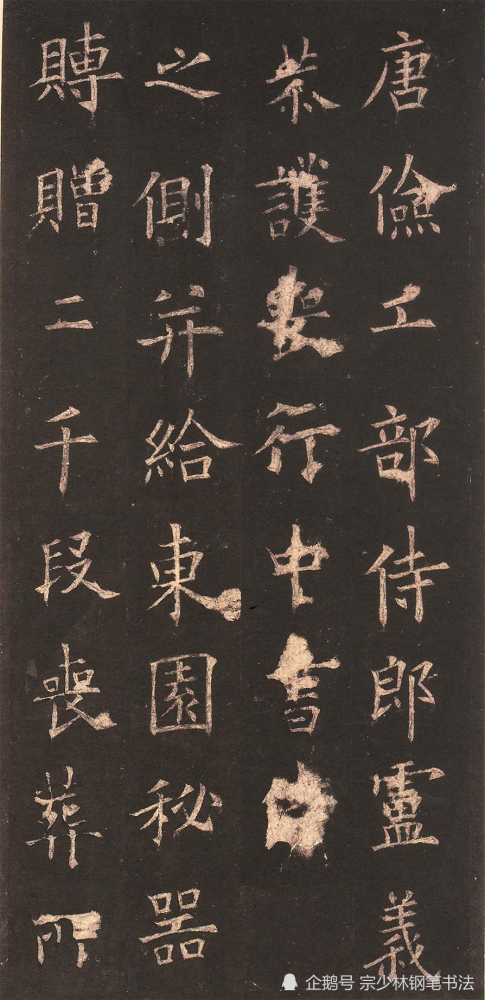 唐儉工部侍郎盧義
恭護喪行中書
之側并給東園秘器
賻贈二千段喪葬所
企鹅号 宗少林钢笔书法